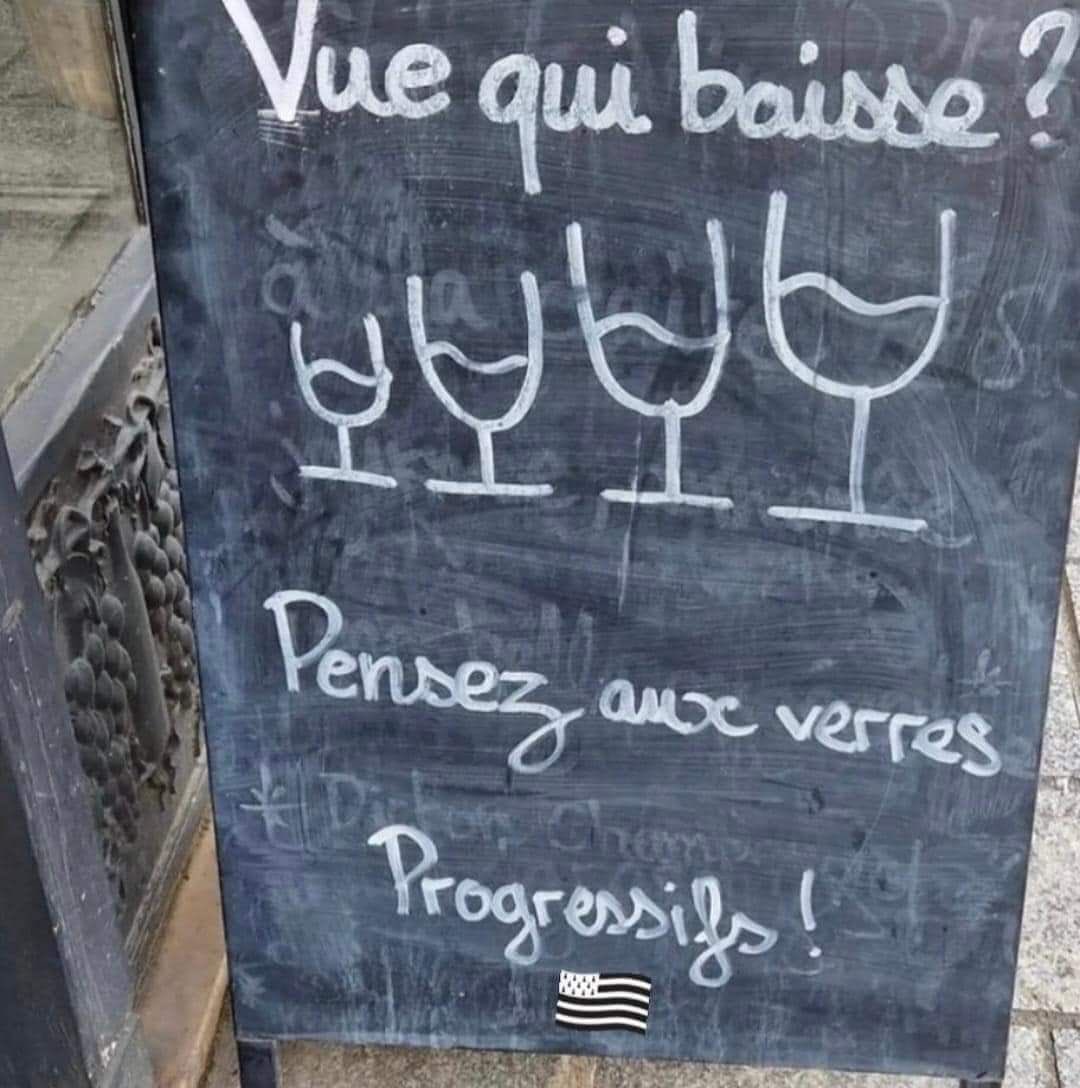 Vue qui baisse ?
Pensez aux verres
Progressifs !